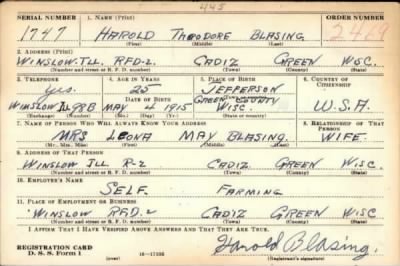 445
SERIAL NUMBER 1. NAME (Print) ORDER NUMBER
1747 HAROLD THEODORE BLASING 2469
(First) (Middle) (Last)
2. ADDRESS (Print)
WINSLOW ILL. RFD-2 CADIZ GREEN WISC.
(Number and street or R. F. D. number) (Town) (County) (State)
3. TELEPHONE 4. AGE IN YEARS 5. PLACE OF BIRTH 6. COUNTRY OF CITIZENSHIP
Yes. 25 JEFFERSON
DATE OF BIRTH GREEN COUNTY
WINSLOW ILL 98B MAY 4 1915 WISC. U.S.A.
(Exchange) (Number) (Mo.) (Day) (Yr.) (State or country)
7. NAME OF PERSON WHO WILL ALWAYS KNOW YOUR ADDRESS 8. RELATIONSHIP OF THAT PERSON
MRS LEONA MAY BLASING. WIFE.
(Mr., Mrs., Miss) (First) (Middle) (Last)
9. ADDRESS OF THAT PERSON
WINSLOW ILL R-2 CADIZ GREEN WISC.
(Number and street or R. F. D. number) (Town) (County) (State)
10. EMPLOYER'S NAME
SELF. FARMING
11. PLACE OF EMPLOYMENT OR BUSINESS
WINSLOW RFD.2 CADIZ GREEN WISC.
(Number and street or R. F. D. number) (Town) (County) (State)
I AFFIRM THAT I HAVE VERIFIED ABOVE ANSWERS AND THAT THEY ARE TRUE.
REGISTRATION CARD
D. S. S. Form 1 (over) 16—17105 Harold Blasing.
(Registrant's signature)